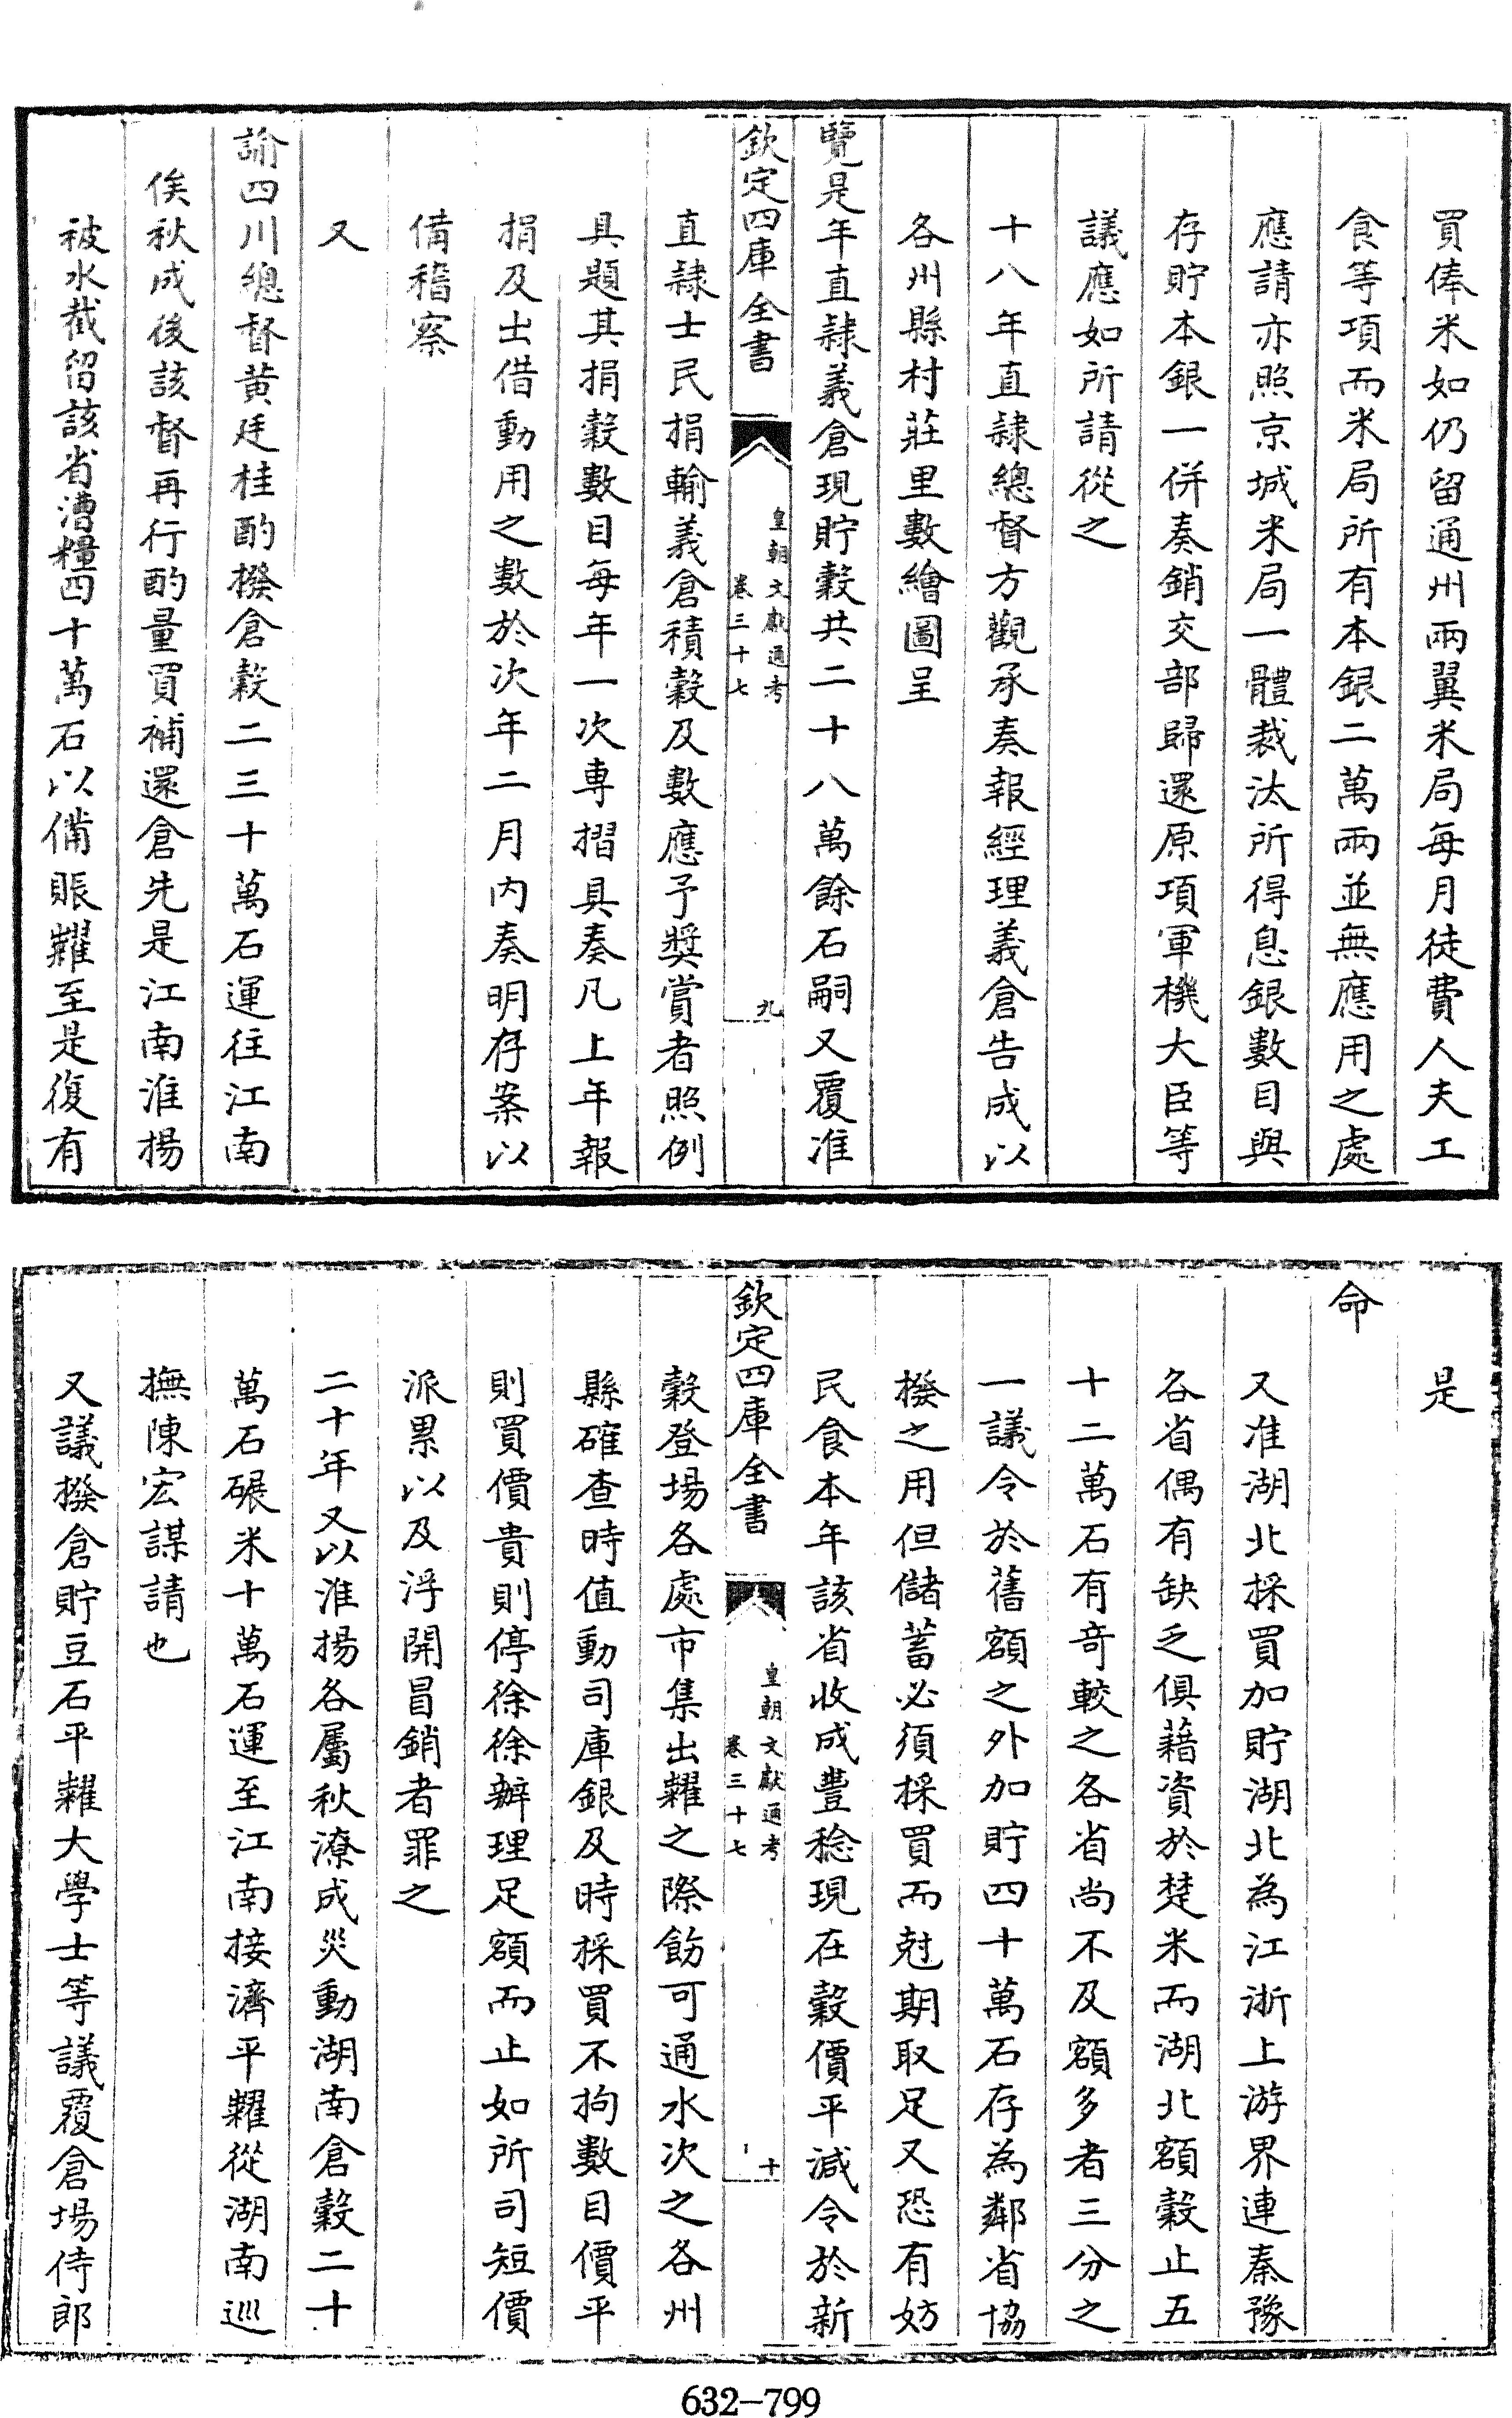 買俸米如仍留通州兩翼米局每月徒費人夫工
食等項而米局所有本銀二萬兩並無應用之處
應請亦照京城米局一體裁汰所得息銀數目與
存貯本銀一併奏銷交部歸還原項軍機大臣等
議應如所請從之
十八年直隸總督方觀承奏報經理義倉告成以
各州縣村莊里數繪圖呈
覽是年直隸義倉現貯穀共二十八萬餘石嗣又覆准
欽定四庫全書
皇朝文獻通考
卷三十七
九
直隸士民捐輸義倉積穀及數應予獎賞者照例
具題其捐穀數目每年一次專摺具奏凡上年報
捐及出借動用之數於次年二月內奏明存案以
備稽察
又
諭四川總督黄廷桂酌撥倉穀二三十萬石運往江南
俟秋成後該督再行酌量買補還倉先是江南淮揚
被水截留該省漕糧四十萬石以備賬糶至是復有
是
命
又准湖北採買加貯湖北為江浙上游界連秦豫
各省偶有缺乏俱藉資於楚米而湖北額穀止五
十二萬石有奇較之各省尚不及額多者三分之
一議令於舊額之外加貯四十萬石存為鄰省協
撥之用但儲蓄必須採買而尅期取足又恐有妨
民食本年該省收成豐稔現在穀價平減令於新
欽定四庫全書
皇朝文獻通考
卷三十七
十
穀登場各處市集出糶之際飭可通水次之各州
縣確查時值動司庫銀及時採買不拘數目價平
則買價貴則停徐徐辦理足額而止如所司短價
派累以及浮開冒銷者罪之
二十年又以淮揚各屬秋潦成災動湖南倉穀二十
萬石碾米十萬石運至江南接濟平糶從湖南巡
撫陳宏謀請也
又議撥倉貯豆石平糶大學士等議覆倉場侍郎
632-799